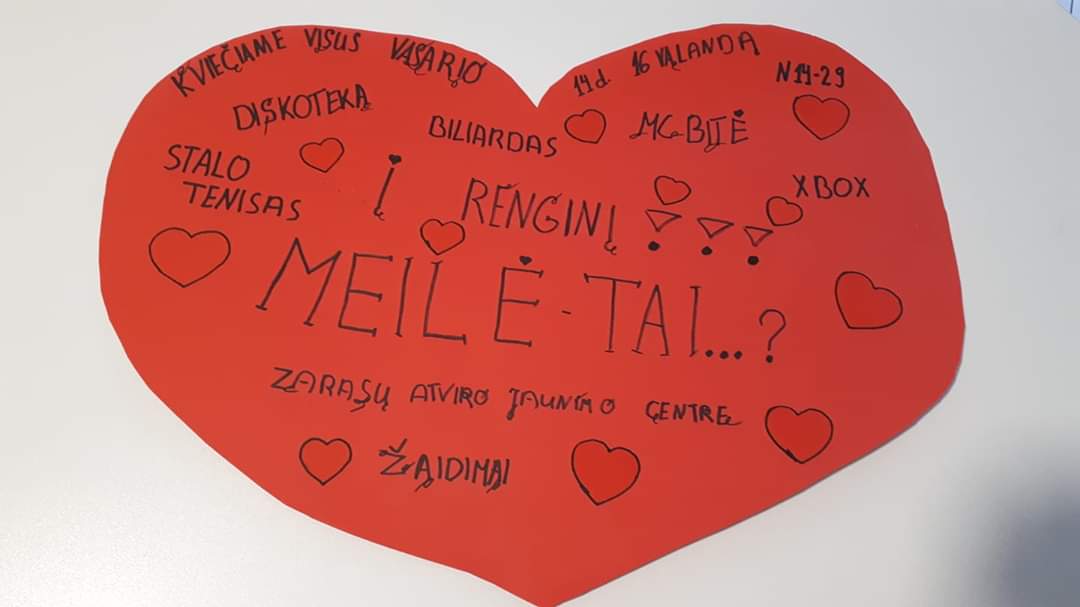 KVIEČIAME VISUS VASARIO 14d. 16 VALANDA N14-29
DISKOTEKA
BILIARDAS
MC BITĖ
STALO
TENISAS
Į RENGINĮ !!!
XBOX
MEILĖ-TAI...?
ZARASŲ ATVIRO JAUNIMO CENTRE
ŽAIDIMAI